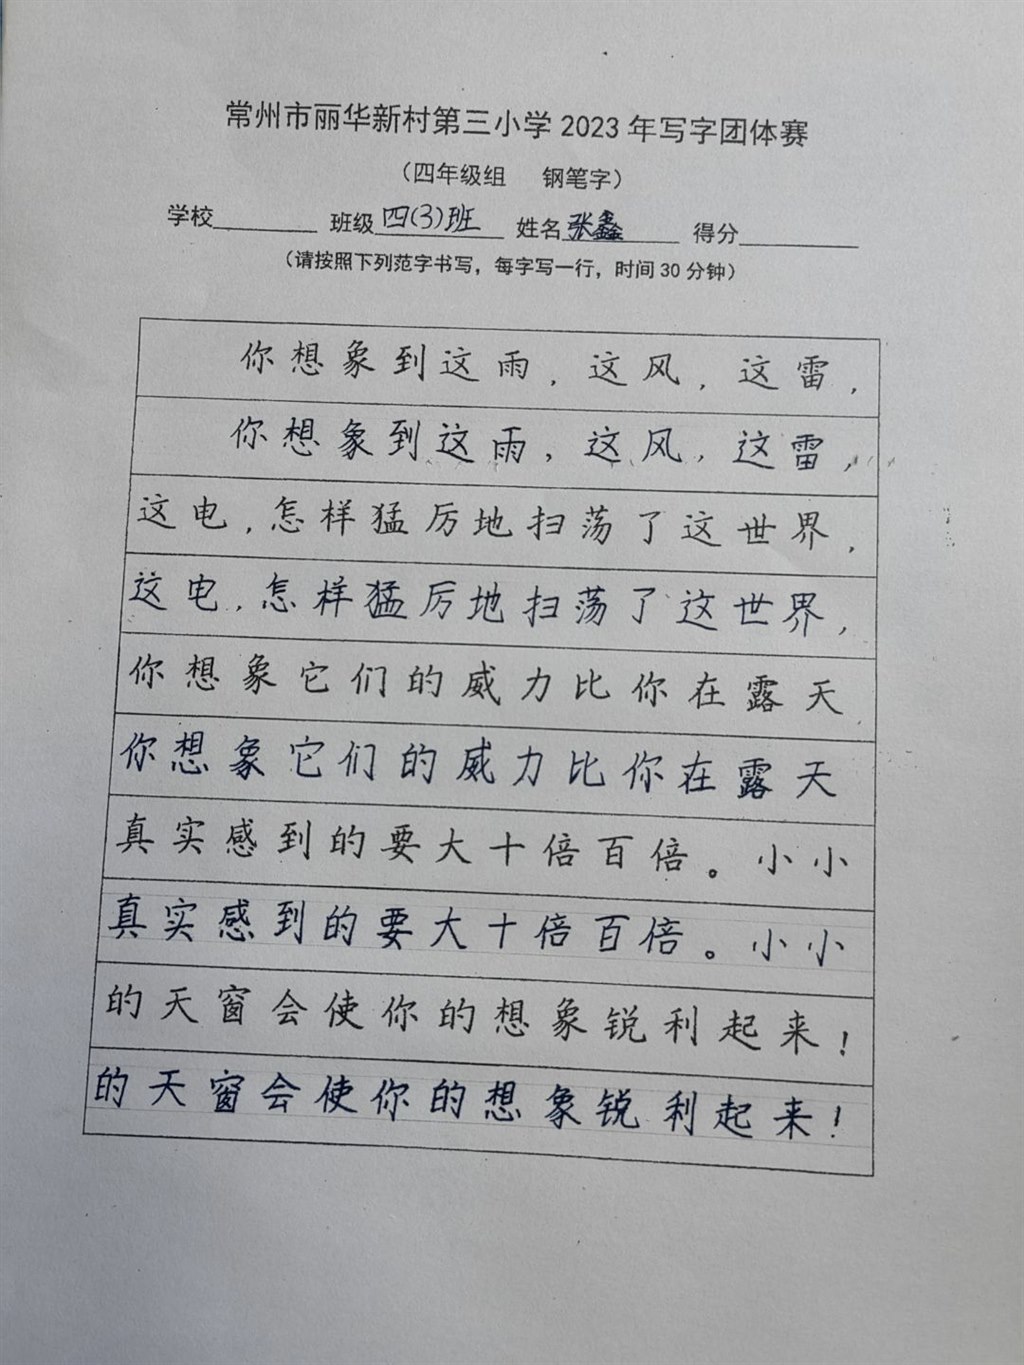 常州市丽华新村第三小学 2023 年写字团体赛
（四年级组 钢笔字）
学校________ 班级四(3)班 姓名张鑫 得分________
（请按照下列范字书写，每字写一行，时间 30 分钟）
你想象到这雨，这风，这雷，
你想象到这雨，这风，这雷，
这电，怎样猛厉地扫荡了这世界，
这电，怎样猛厉地扫荡了这世界，
你想象它们的威力比你在露天
你想象它们的威力比你在露天
真实感到的要大十倍百倍。小小
真实感到的要大十倍百倍。小小
的天窗会使你的想象锐利起来！
的天窗会使你的想象锐利起来！